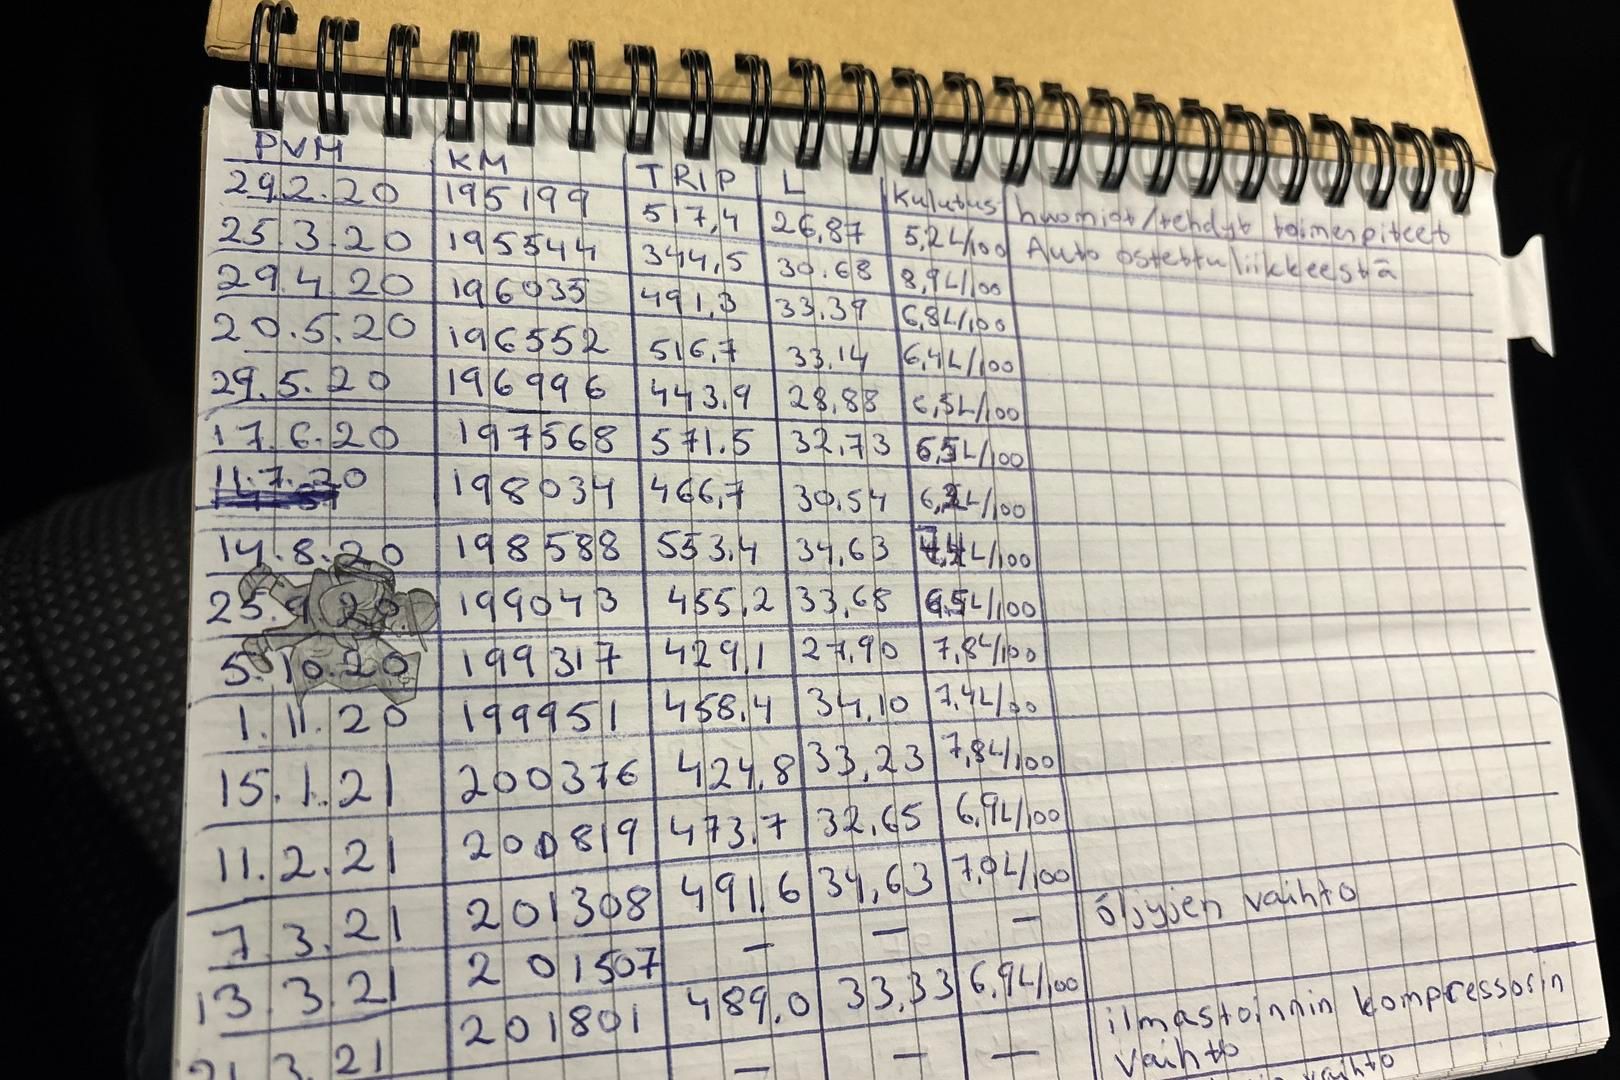 PVM KM TRIP L Kulutus huomiot/tehdyt toimenpiteet
29.2.20 195199 517,4 26,87 5,2L/100 Auto ostettu liikkeestä
25.3.20 195544 344,5 30.68 8,9L/100
29.4.20 196035 491,3 33,39 6,8L/100
20.5.20 196552 516,7 33,14 6,4L/100
29.5.20 196996 443,9 28,88 6,5L/100
17.6.20 197568 571.5 32,73 L/100
11.7.20 198034 466,7 30,54 L/100
14.8.20 198588 553.4 34,63 L/100
25.9.20 199043 455,2 33,68 L/100
5.10.20 199317 429,1 27,90 7,8L/100
1.11.20 199951 458.4 34,10 7,4L/100
15.1.21 200376 424,8 33,23 7,8L/100
11.2.21 200819 473.7 32,65 6,9L/100
7.3.21 201308 491.6 34,63 7,0L/100
13.3.21 201507 – – – öljyjen vaihto
21.3.21 201801 489,0 33,33 6,9L/100
– – – ilmastoinnin kompressorin
vaihto
vaihto